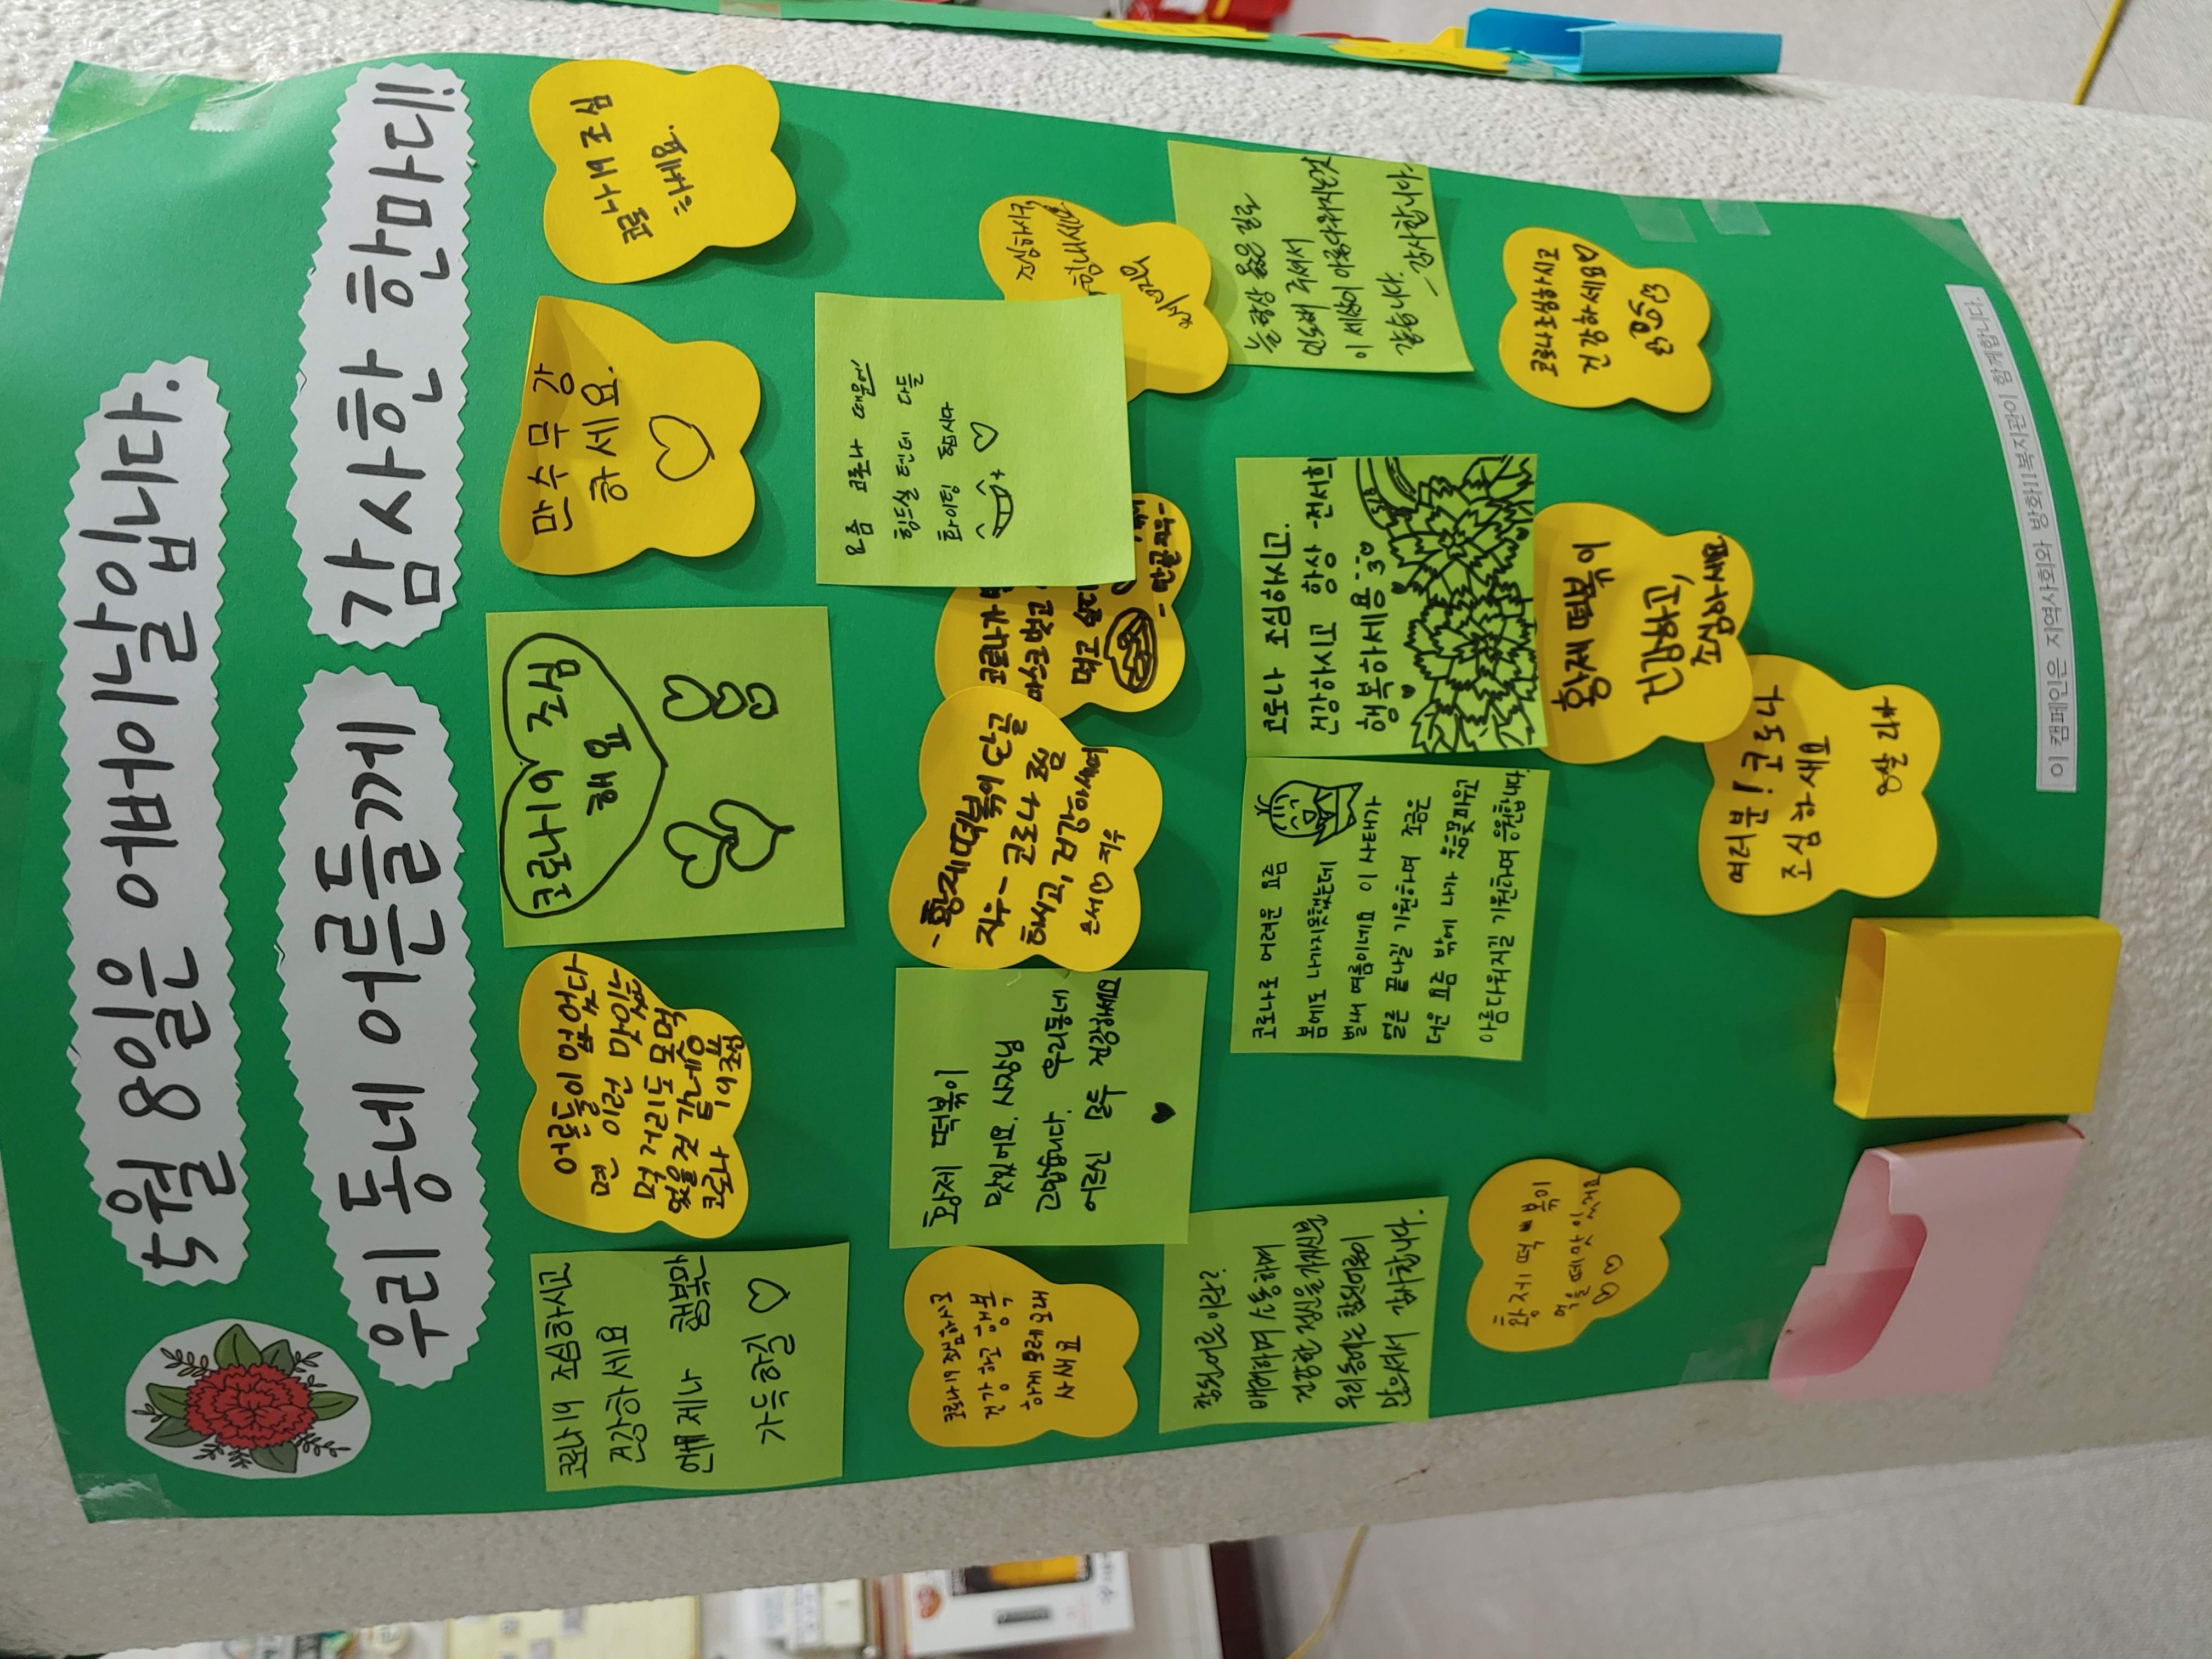 5월 8일은 어버이날입니다.
우리 동네 어른들께 감사한 한마디!
코로나19 조심하시고
건강하세요
언제나 행복만
가득하길 ♡
어른들이 없었다
면 이런 맛있는
먹거리도 못먹
었을것 같네용
코로나19조심
코로나19 조심
해요
만수무강
하세요.
♡
코로나19 조심
하세요.
코로나19 조심하시고
건강하고, 행복
하게 오래오래
사세요
황제 떡볶이
맛있어요. 사장님
고맙습니다. 우리동네
어르신 모두 건강하세요
♥
-황제떡볶이 단골
지우- 코로나 조심
하고, 건강하세여
은서♡지우
코로나가
마스크 벗고
먹고 싶다
-단골
요즘 코로나 때문에
힘드실 텐데 다들
화이팅 합시다
♡
조심하시구,
힘내세요
참된어른이란?
배려하며 소통하며
건강한 정신을가지신분
우리동네는 참된어른이
많으셔서 감사합니다.
코로나로 어려운 요즘
봄에도 나가지못했는데
벌써 여름이네요 이 사태가
얼른 끝나길 기원하며 조금은
더운 요즘 밖에 나가 웃음꽃피우고
아름다워지길 기원하며 응원합니다.
코로나 조심하시고.
건강하시고 항상 -전서희
행복하세용
늘 항상 옳은 길로
인도해 주셔서
이 세상이 아름다워지는것
같습니다.
- 감사합니다.
황제 떡볶이
먹을때 맛있서요
♡♡
여러분! 코로나
조심하세요
8살 리나
황제 떡볶이
건강하고,
조심하세요
코로나조심하시고
건강하세요♡
이 캠페인은 지역사회와 방화11복지관이 함께합니다.